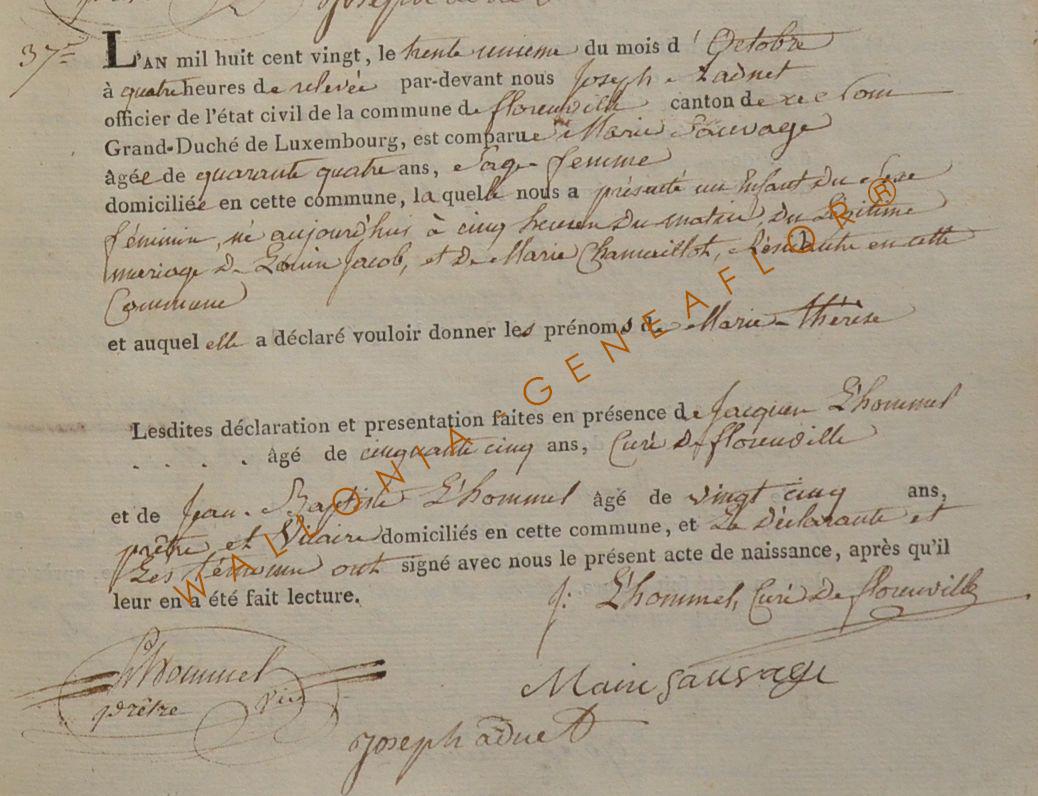 37e
L'AN mil huit cent vingt, le trente unieme du mois d' Octobre
à quatre heures de relevée par-devant nous Joseph Adnet
officier de l'état civil de la commune de florenville canton de
Grand-Duché de Luxembourg, est comparue Marie Sauvage
âgée de quarante quatre ans, Sage femme
domiciliée en cette commune, laquelle nous a présenté un Enfant du Sexe
féminin, né aujourd'hui à cinq heures du matin, du Légitime
mariage de Louis Jacob, et de Marie Résidante en cette
Commune
et auquel elle a déclaré vouloir donner les prénoms de Marie-Thérèse
Lesdites déclaration et presentation faites en présence de Jacques L'hommel
. . . . . âgé de cinquante cinq ans, Curé de florenville
et de Jean-Baptiste L'hommel âgé de vingt cinq ans,
prêtre et Vicaire domiciliés en cette commune, et La déclarante et
Les témoins ont signé avec nous le présent acte de naissance, après qu'il
leur en a été fait lecture.
J: L'hommel, Curé de florenville
L'hommel
prêtre vic
Marie Sauvage
Joseph adnet
WALLONIA - GENEAFLOR®